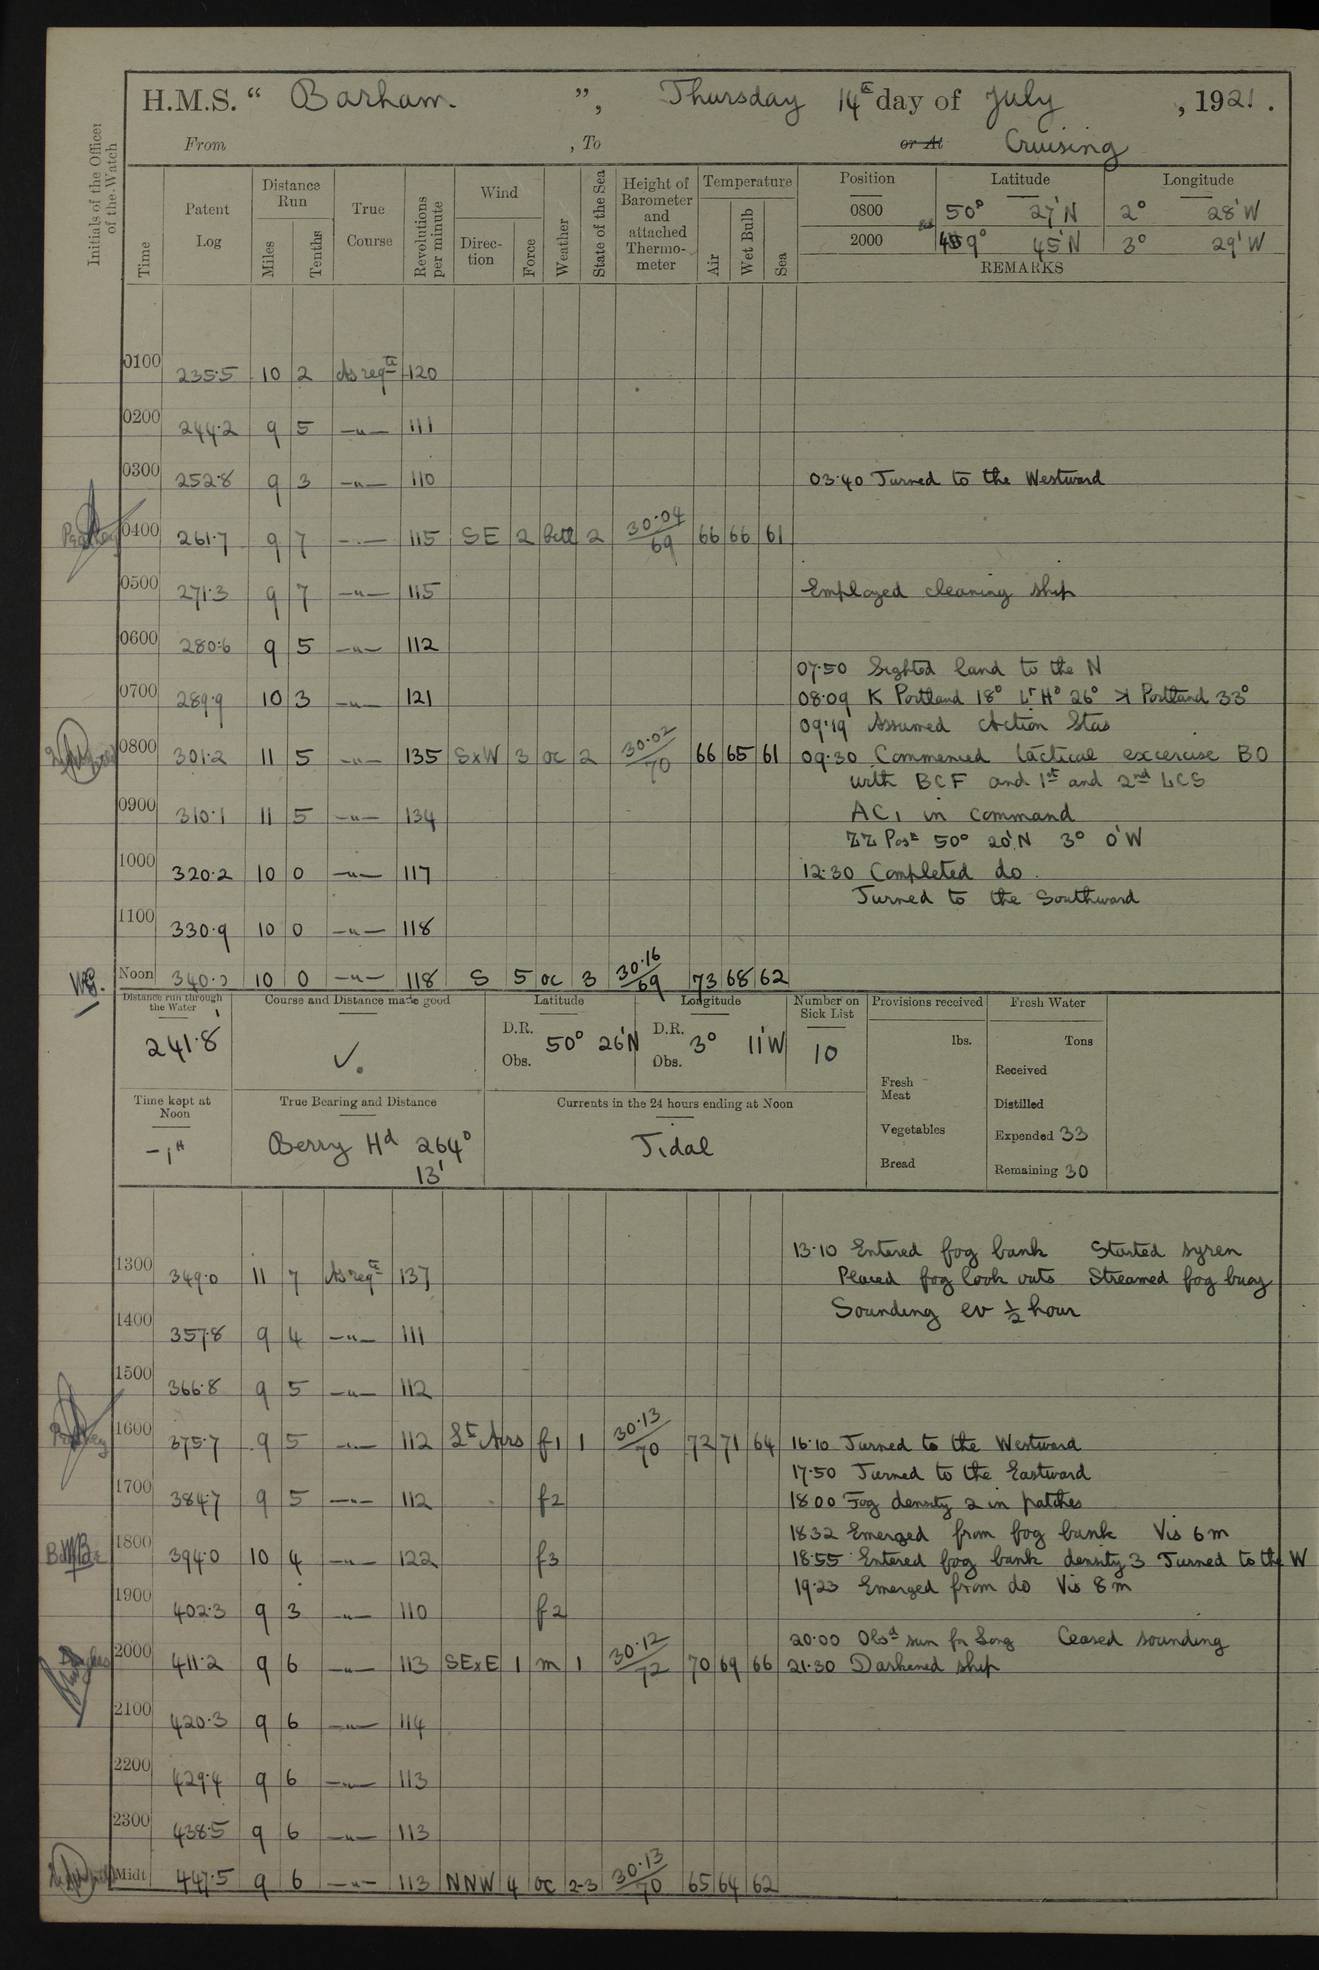 H.M.S. “ Barham. ”, Thursday 14th day of July , 1921.
From , To or At Cruising
Initials of the Officer of the Watch
Time
Patent Log
Distance Run
Miles
Tenths
True Course
Revolutions per minute
Wind
Direction
Force
Weather
State of the Sea
Height of Barometer and attached Thermometer
Temperature
Air
Wet Bulb
Sea
Position Latitude Longitude
0800 50° 27' N 2° 28' W
2000 49° 45' N 3° 29' W
REMARKS
0100 235.5 10 2 As reqte 120
0200 244.2 9 5 —"— 111
0300 252.8 9 3 —"— 110 03.40 Turned to the Westward
0400 261.7 9 7 —"— 115 SE 2 2 30.04/69 66 66 61
0500 271.3 9 7 —"— 115 Employed cleaning ship
0600 280.6 9 5 —"— 112
07.50 Sighted land to the N
0700 289.9 10 3 —"— 121 08.09 Portland 18° Lt Ho 26° Portland 33°
09.19 Assumed Action Stas
0800 301.2 11 5 —"— 135 SxW 3 oc 2 30.02/70 66 65 61 09.30 Commenced tactical excercise BO
with BCF and 1st and 2nd LCS
0900 310.1 11 5 —"— 134 AC1 in command
ZZ Posn 50° 20' N 3° 0' W
1000 320.2 10 0 —"— 117 12.30 Completed do.
Turned to the Southward
1100 330.9 10 0 —"— 118
Noon 340.0 10 0 —"— 118 S 5 oc 3 30.16/69 73 68 62
Distance run through the Water
241.8
Course and Distance made good
✓.
Latitude
D.R.
Obs.
50° 26' N
Longitude
D.R.
Obs.
3° 11' W
Number on Sick List
10
Provisions received
lbs.
Fresh Meat
Vegetables
Bread
Fresh Water
Tons
Received
Distilled
Expended 33
Remaining 30
Time kept at Noon
-1H
True Bearing and Distance
Berry Hd 264°
13'
Currents in the 24 hours ending at Noon
Tidal
13.10 Entered fog bank Started syren
1300 349.0 11 7 As reqte 137 Placed fog look outs Streamed fog buoy
Sounding ev ½ hour
1400 357.8 9 4 —"— 111
1500 366.8 9 5 —"— 112
1600 375.7 9 5 —"— 112 Lt Airs f1 1 30.13/70 72 71 64 16.10 Turned to the Westward
17.50 Turned to the Eastward
1700 384.7 9 5 —"— 112 f2 1800 Fog density 2 in patches
1832 Emerged from fog bank Vis 6 m
1800 394.0 10 4 —"— 122 f3 18.55 Entered fog bank density 3 Turned to the W
19.23 Emerged from do Vis 8 m
1900 402.3 9 3 —"— 110 f2
20.00 Obsd sun for Long Ceased sounding
2000 411.2 9 6 —"— 113 SExE 1 m 1 30.12/72 70 69 66 21.30 Darkened ship
2100 420.3 9 6 —"— 114
2200 429.4 9 6 —"— 113
2300 438.5 9 6 —"— 113
Midt 447.5 9 6 —"— 113 NNW 4 oc 2-3 30.13/70 65 64 62